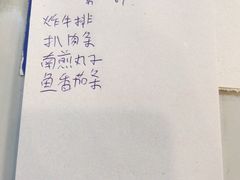 炸牛排
扒肉条
南煎丸子
鱼番茄条